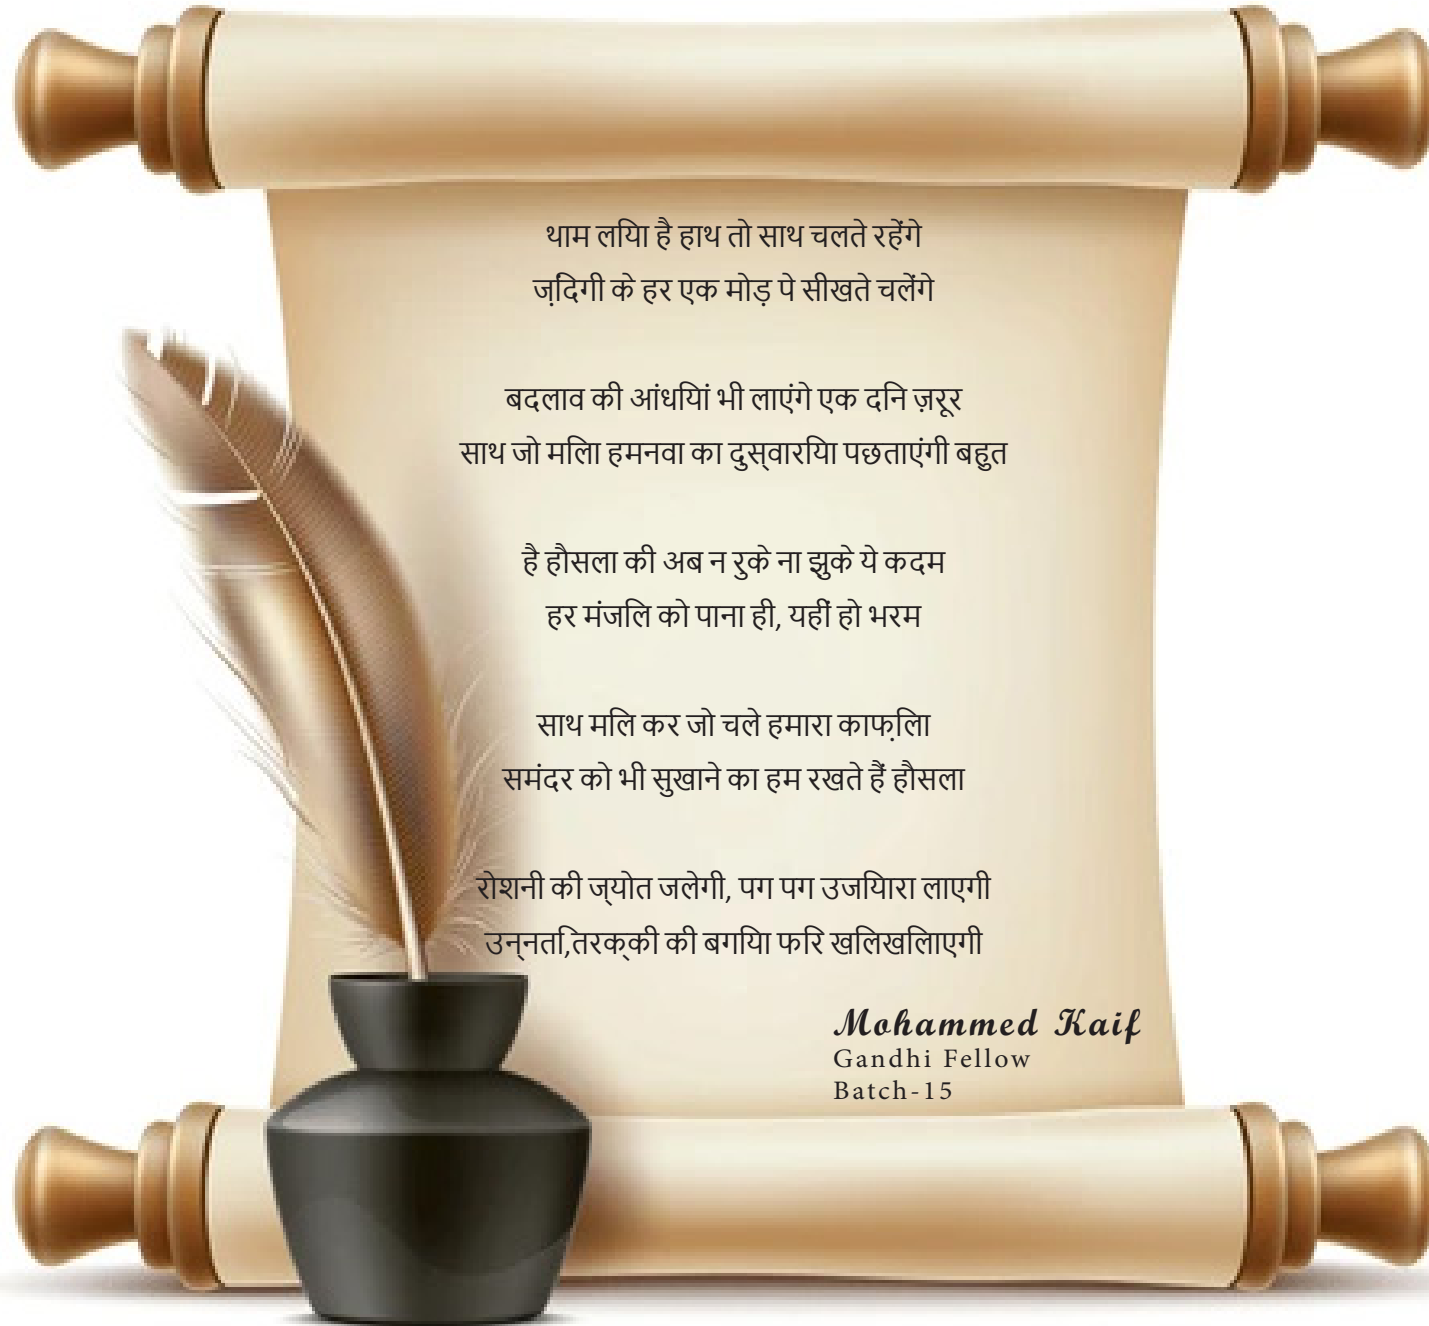 थाम लिया है हाथ तो साथ चलते रहेंगे
ज़िंदगी के हर एक मोड़ पे सीखते चलेंगे
बदलाव की आंधियां भी लाएंगे एक दिन ज़रूर
साथ जो मिला हमनवा का दुस्वारिया पछताएंगी बहुत
है हौसला की अब न रुके ना झुके ये कदम
हर मंजिल को पाना ही, यहीं हो भरम
साथ मिल कर जो चले हमारा काफ़िला
समंदर को भी सुखाने का हम रखते हैं हौसला
रोशनी की ज्योत जलेगी, पग पग उजियारा लाएगी
उन्नति,तरक्की की बगिया फिर खिलखिलाएगी
Mohammed Kaif
Gandhi Fellow
Batch-15